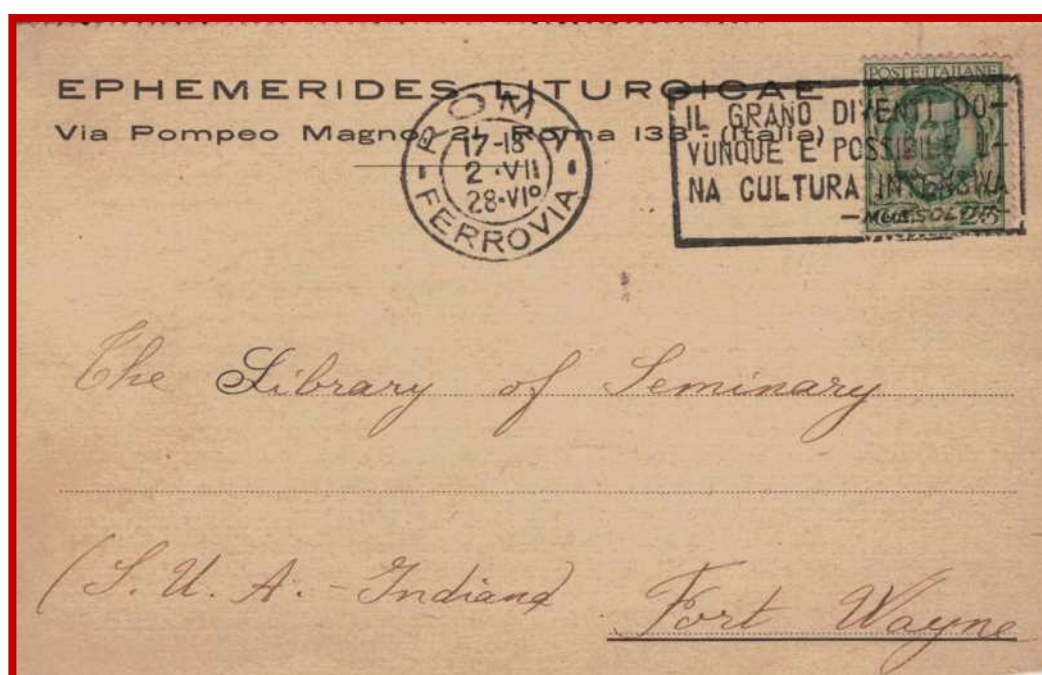 EPHEMERIDES LITURGICAE
Via Pompeo Magno 21 Roma 133 - (Italia)
ROMA
17-18
2·VII
28·VIº
- FERROVIA -
POSTE ITALIANE
IL GRANO DIVENTI DO-
VUNQUE E POSSIBILE U-
NA CULTURA INTENSIVA
- MUSSOLINI -
25
The Library of Seminary
(S. U. A. - Indiana)
Fort Wayne